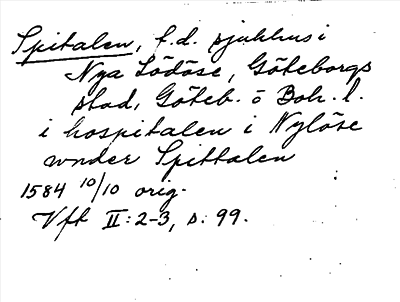 Spitalen, f.d. sjukhus i
Nya Lödöse, Göteborgs
stad, Göteb. o Boh. l.
i hospitalen i Nylöse
wnder Spittalen
1584 10/10 orig.
Vfk II: 2-3, s. 99.